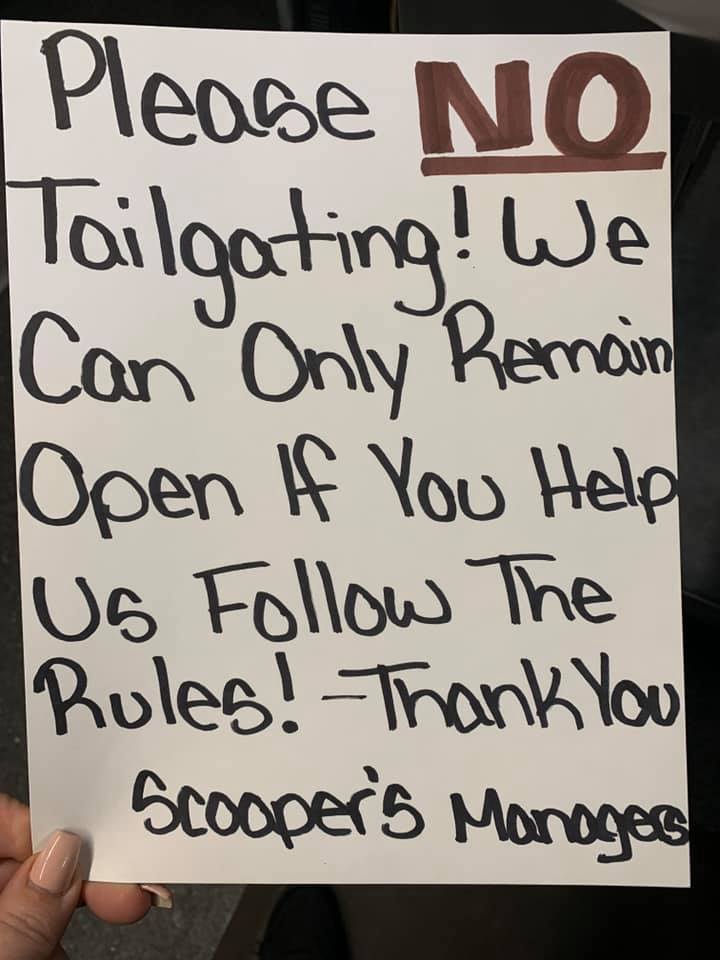 Please NO
Tailgating! We
Can Only Remain
Open If You Help
Us Follow The
Rules! -Thank You
Scooper's Managers